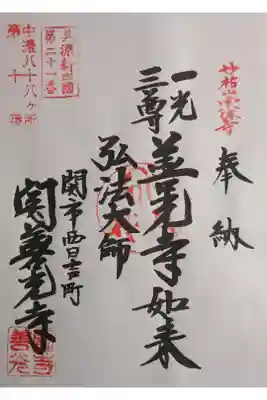 妙祐山宗休寺
奉納
一光
三尊
善光寺如来
弘法大師
関市西日吉町
関善光寺
美濃新四国
第二十一番
中濃八十八ヶ所